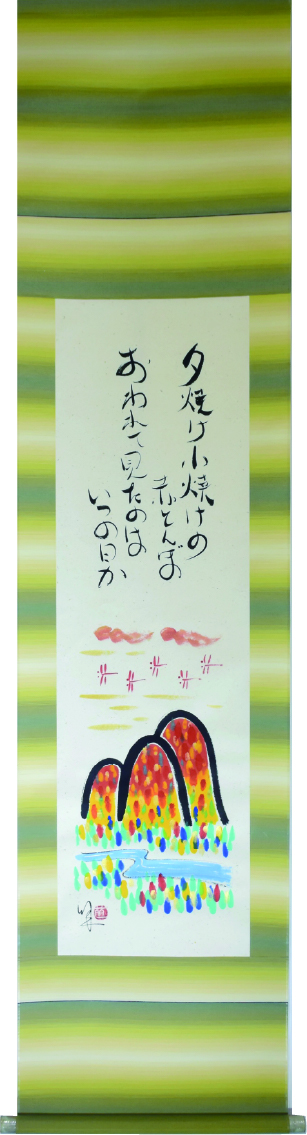 夕焼け小焼けの
赤とんぼ
おわれて見たのは
いつの日か